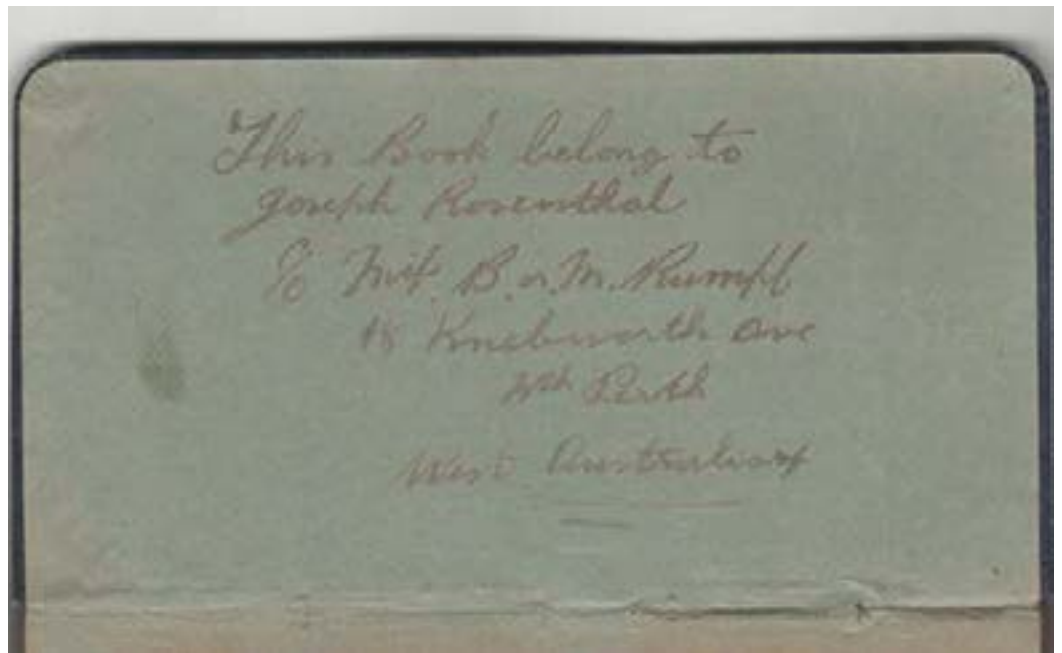 This Book belong to
Joseph Rosenthal
c/o B. or M. Rumpf
18 Knebworth Ave
Nth Perth
West Australia